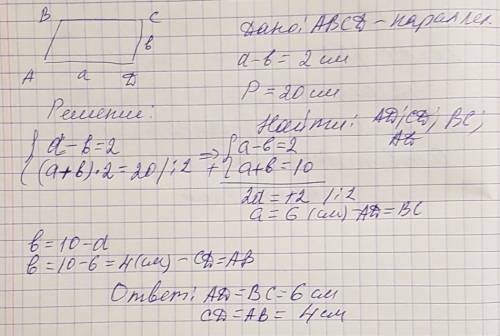 B C
в
A a D
Дано: ABCD – параллел.
a-в = 2 см
P = 20 см
Найти: AD, CD, BC,
AB
Решение:
{ a-в=2
{ (a+в)·2=20 /:2
=> + { a-в=2
{ a+в=10
2a = 12 /:2
a = 6 (см) - AD=BC
в = 10-a
в = 10-6 = 4 (см) - CD=AB
Ответ: AD=BC=6 см
CD=AB = 4 см